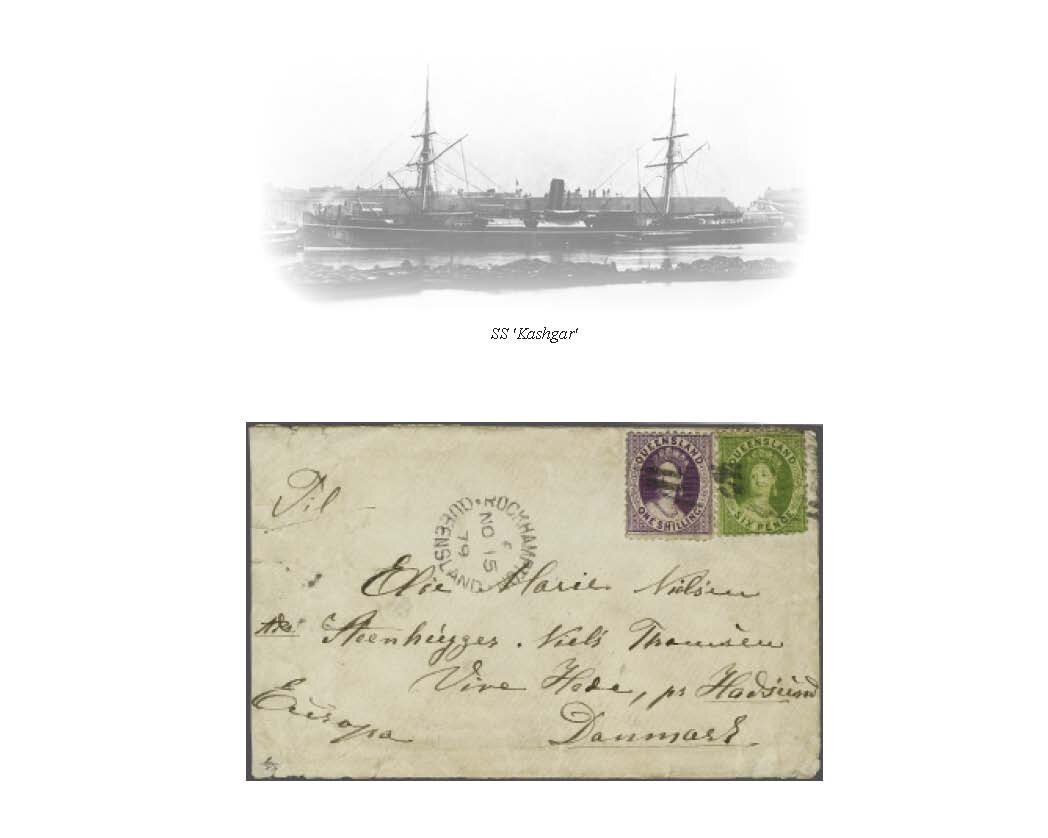 SS 'Kashgar'
QUEENSLAND
ONE SHILLING
QUEENSLAND
SIX PENCE
Til
ROCKHAMPTON
NO 15
79
QUEENSLAND
Elsie Marie Nielsen
Adr Steenhugger. Niels Thomsen
Vive Hede, pr Hadsund
Europa Danmark.